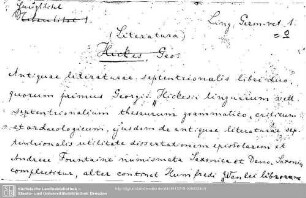 Ling. Germ. vet. 1.
(Literatura)
Hickes Geo.
Antiquae literaturae septentrionalis libri duo,
quorum primus Georgii Hickesii linguarum vett.
septentrionalium thesaurum grammatico-criticum
et archaeologicum, ejusdem de antiquae literaturae sep-
tentrionalis utilitate dissertationem epistolarem et
Andreae Fountaine numismata Saxonica et Dano-Saxonica
complectitur, alter continet Humfredi Wanleii librorum